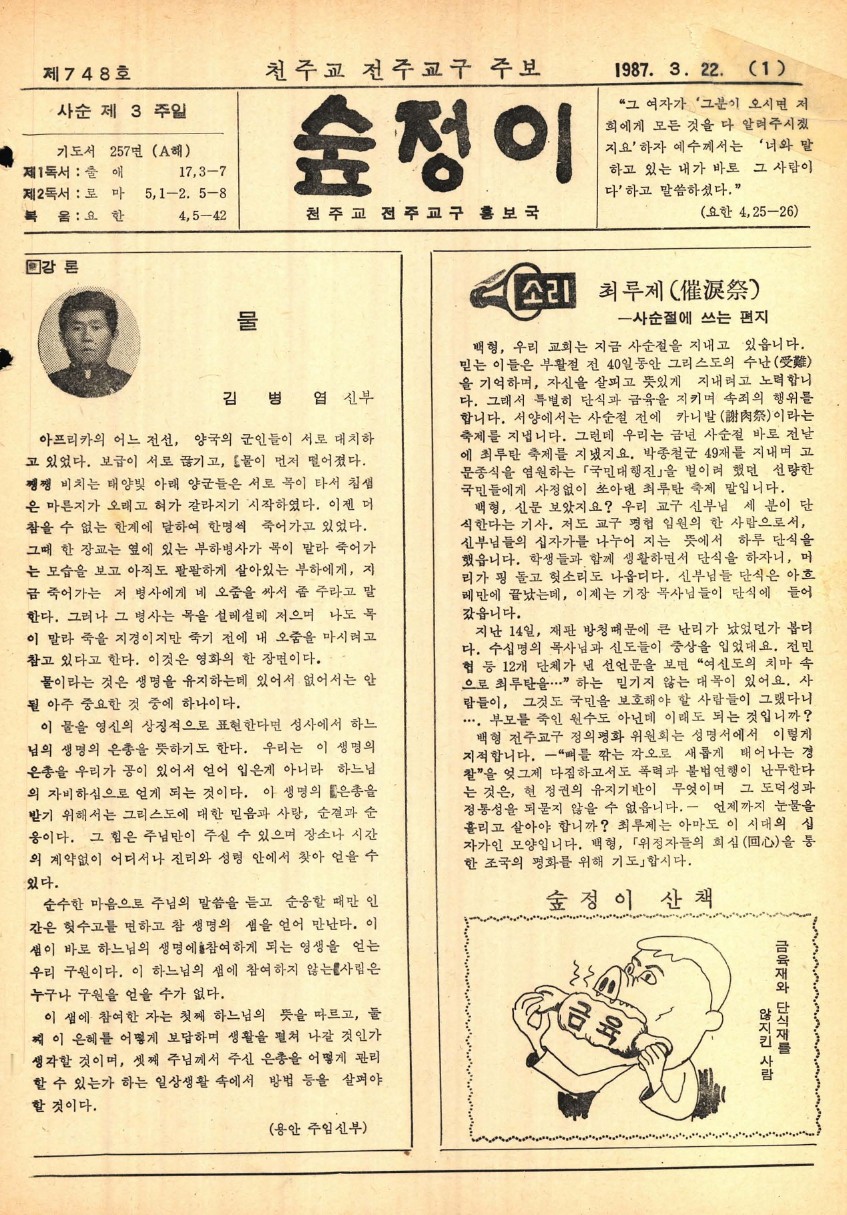 제748호
천주교 전주교구 주보
1987. 3. 22. (1)
사순 제 3 주일
기도서 257면 (A해)
제1독서 : 출 애 17,3-7
제2독서 : 로 마 5,1-2. 5-8
복 음 : 요 한 4,5-42
숲정이
천주교 전주교구 홍보국
“그 여자가 ‘그분이 오시면 저
희에게 모든 것을 다 알려주시겠
지요’하자 예수께서는 ‘너와 말
하고 있는 내가 바로 그 사람이
다’하고 말씀하셨다.”
(요한 4,25-26)
강 론
물
김 병 엽 신부
아프리카의 어느 전선, 양국의 군인들이 서로 대치하
고 있었다. 보급이 서로 끊기고, 물이 먼저 떨어졌다.
쨍쨍 비치는 태양빛 아래 양군들은 서로 목이 타서 침샘
은 마른지가 오래고 혀가 갈라지기 시작하였다. 이젠 더
참을 수 없는 한계에 달하여 한명씩 죽어가고 있었다.
그때 한 장교는 옆에 있는 부하병사가 목이 말라 죽어가
는 모습을 보고 아직도 팔팔하게 살아있는 부하에게, 지
금 죽어가는 저 병사에게 네 오줌을 싸서 좀 주라고 말
한다. 그러나 그 병사는 목을 설레설레 저으며 나도 목
이 말라 죽을 지경이지만 죽기 전에 내 오줌을 마시려고
참고 있다고 한다. 이것은 영화의 한 장면이다.
물이라는 것은 생명을 유지하는데 있어서 없어서는 안
될 아주 중요한 것 중에 하나이다.
이 물을 영신의 상징적으로 표현한다면 성사에서 하느
님의 생명의 은총을 뜻하기도 한다. 우리는 이 생명의
은총을 우리가 공이 있어서 얻어 입은게 아니라 하느님
의 자비하심으로 얻게 되는 것이다. 이 생명의 은총을
받기 위해서는 그리스도에 대한 믿음과 사랑, 순결과 순
응이다. 그 힘은 주님만이 주실 수 있으며 장소나 시간
의 계약없이 어디서나 진리와 성령 안에서 찾아 얻을 수
있다.
순수한 마음으로 주님의 말씀을 듣고 순응할 때만 인
간은 헛수고를 면하고 참 생명의 샘을 얻어 만난다. 이
샘이 바로 하느님의 생명에 참여하게 되는 영생을 얻는
우리 구원이다. 이 하느님의 샘에 참여하지 않는 사람은
누구나 구원을 얻을 수가 없다.
이 샘에 참여한 자는 첫째 하느님의 뜻을 따르고, 둘
째 이 은혜를 어떻게 보답하며 생활을 펼쳐 나갈 것인가
생각할 것이며, 셋째 주님께서 주신 은총을 어떻게 관리
할 수 있는가 하는 일상생활 속에서 방법 등을 살펴야
할 것이다.
(용안 주임신부)
소리
최루제(催淚祭)
—사순절에 쓰는 편지
백형, 우리 교회는 지금 사순절을 지내고 있읍니다.
믿는 이들은 부활절 전 40일동안 그리스도의 수난(受難)
을 기억하며, 자신을 살피고 뜻있게 지내려고 노력합니
다. 그래서 특별히 단식과 금육을 지키며 속죄의 행위를
합니다. 서양에서는 사순절 전에 카니발(謝肉祭)이라는
축제를 지냅니다. 그런데 우리는 금년 사순절 바로 전날
에 최루탄 축제를 지냈지요. 박종철군 49재를 지내며 고
문종식을 염원하는「국민대행진」을 벌이려 했던 선량한
국민들에게 사정없이 쏘아댄 최루탄 축제 말입니다.
백형, 신문 보았지요? 우리 교구 신부님 세 분이 단
식한다는 기사. 저도 교구 평협 임원의 한 사람으로서,
신부님들의 십자가를 나누어 지는 뜻에서 하루 단식을
했읍니다. 학생들과 함께 생활하면서 단식을 하자니, 머
리가 핑 돌고 헛소리도 나옵디다. 신부님들 단식은 아흐
레만에 끝났는데, 이제는 기장 목사님들이 단식에 들어
갔읍니다.
지난 14일, 재판 방청때문에 큰 난리가 났었던가 봅디
다. 수십명의 목사님과 신도들이 중상을 입었대요. 전민
협 등 12개 단체가 낸 선언문을 보면 “여신도의 치마 속
으로 최루탄을…” 하는 믿기지 않는 대목이 있어요. 사
람들이, 그것도 국민을 보호해야 할 사람들이 그랬다니
…. 부모를 죽인 원수도 아닌데 이래도 되는 것입니까?
백형 전주교구 정의평화 위원회는 성명서에서 이렇게
지적합니다. —“뼈를 깎는 각오로 새롭게 태어나는 경
찰”을 엊그제 다짐하고서도 폭력과 불법연행이 난무한다
는 것은, 현 정권의 유지기반이 무엇이며 그 도덕성과
정통성을 되묻지 않을 수 없읍니다.— 언제까지 눈물을
흘리고 살아야 합니까? 최루제는 아마도 이 시대의 십
자가인 모양입니다. 백형,「위정자들의 회심(回心)을 통
한 조국의 평화를 위해 기도」합시다.
숲 정 이 산 책
금육재와 단식재를
않지킨 사람
금육